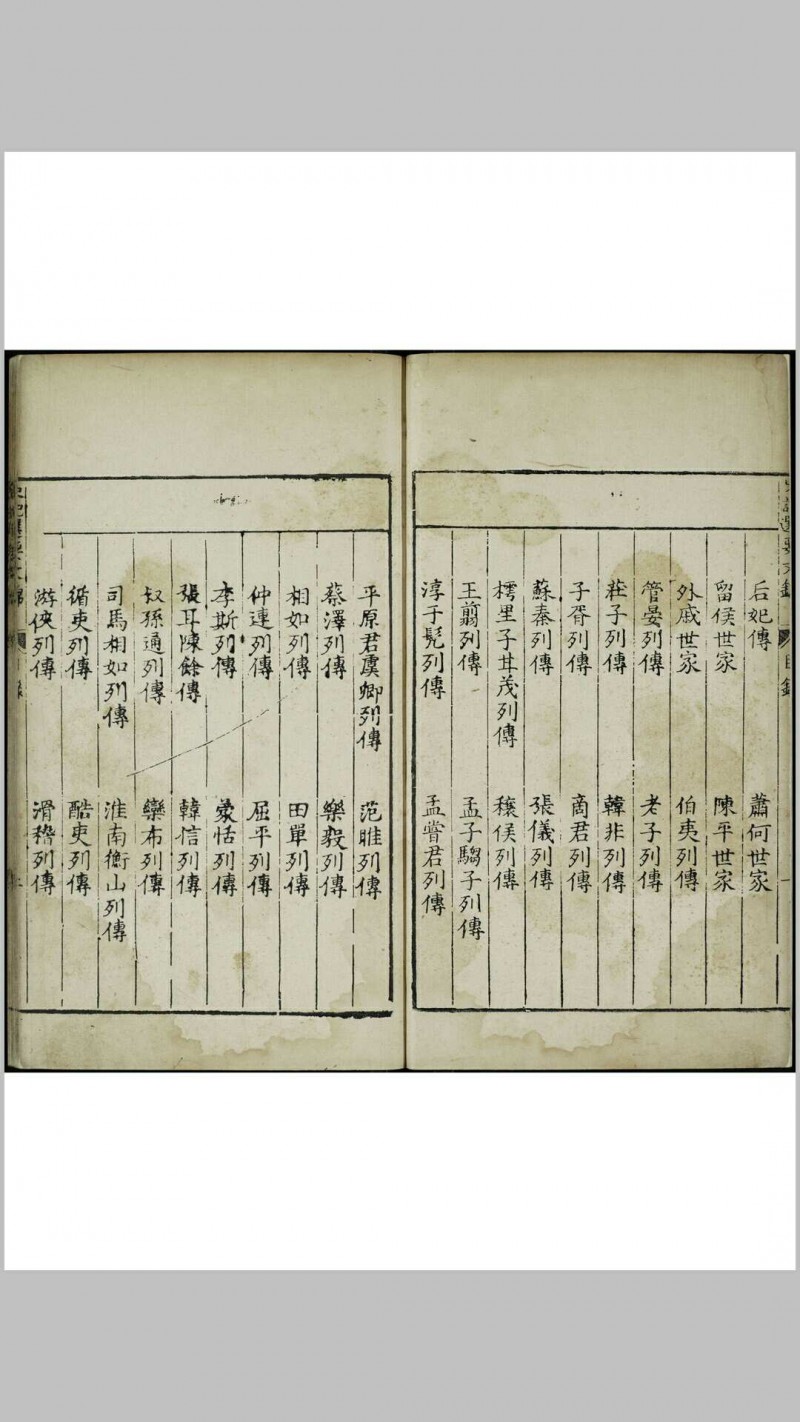 后妃傳
蕭何世家
留侯世家
陳平世家
外戚世家
伯夷列傳
管晏列傳
老子列傳
莊子列傳
韓非列傳
子胥列傳
商君列傳
蘇秦列傳
張儀列傳
樗里子甘茂列傳
穰侯列傳
王翦列傳
孟子騶子列傳
淳于髡列傳
孟嘗君列傳
平原君虞卿列傳
范睢列傳
蔡澤列傳
樂毅列傳
相如列傳
田單列傳
仲連列傳
屈平列傳
李斯列傳
蒙恬列傳
張耳陳餘傳
韓信列傳
叔孫通列傳
欒布列傳
司馬相如列傳
淮南衡山列傳
循吏列傳
酷吏列傳
游俠列傳
滑稽列傳